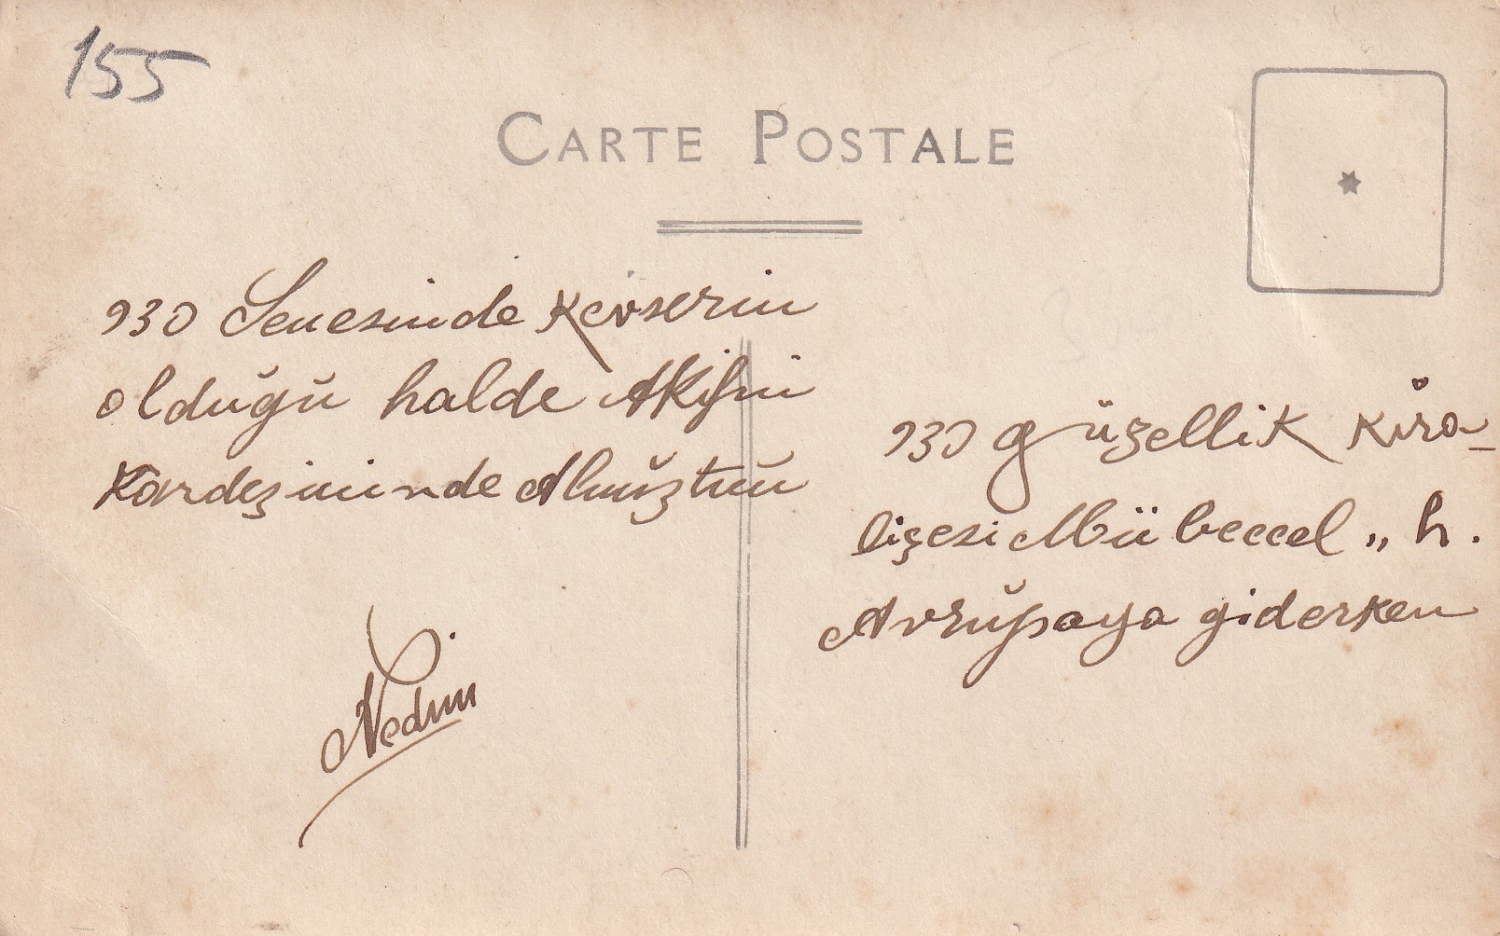 155
CARTE POSTALE
930 Senesinde Kevserin
olduğu halde Akifin
Kardeşininde Almıştım
Nedim
930 güzellik Kıra-
liçesi Mübeccel „ h.
Avrupaya giderken